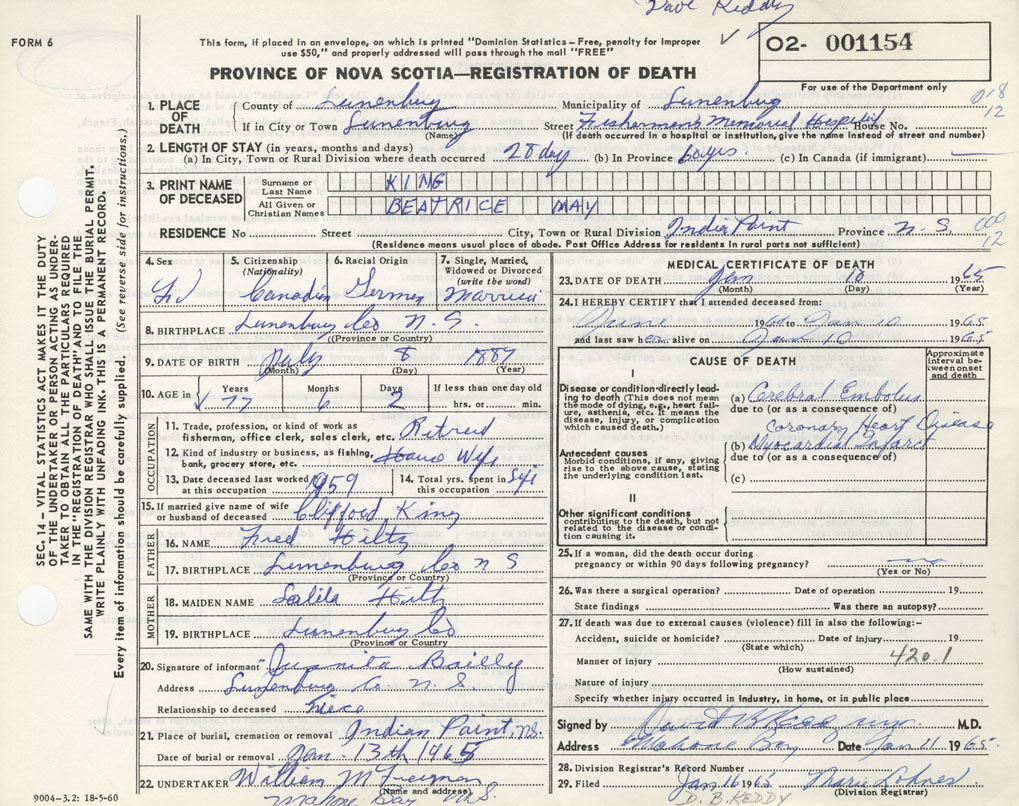 Dave Reddy
FORM 6
This form, if placed in an envelope, on which is printed "Dominion Statistics – Free, penalty for improper
use $50," and properly addressed will pass through the mail "FREE"
O2- 001154
PROVINCE OF NOVA SCOTIA—REGISTRATION OF DEATH
For use of the Department only
018
12
1. PLACE OF DEATH
County of Lunenburg Municipality of Lunenburg
If in City or Town Lunenburg Street Fishermen's Memorial Hospital House No.
(Name) (If death occurred in a hospital or institution, give its name instead of street and number)
2. LENGTH OF STAY (in years, months and days)
(a) In City, Town or Rural Division where death occurred 28 day (b) In Province (c) In Canada (if immigrant)
3. PRINT NAME OF DECEASED
Surname or Last Name KING
All Given or Christian Names BEATRICE MAY
RESIDENCE No Street City, Town or Rural Division India Point Province N.S.
000
12
(Residence means usual place of abode. Post Office Address for residents in rural parts not sufficient)
SEC. 14 – VITAL STATISTICS ACT MAKES IT THE DUTY
OF THE UNDERTAKER OR PERSON ACTING AS UNDER-
TAKER TO OBTAIN ALL THE PARTICULARS REQUIRED
IN THE "REGISTRATION OF DEATH" AND TO FILE THE
SAME WITH THE DIVISION REGISTRAR WHO SHALL ISSUE THE BURIAL PERMIT.
WRITE PLAINLY WITH UNFADING INK. THIS IS A PERMANENT RECORD.
Every item of information should be carefully supplied. (See reverse side for instructions.)
4. Sex
5. Citizenship (Nationality) Canadin
6. Racial Origin German
7. Single, Married, Widowed or Divorced (write the word) Married
8. BIRTHPLACE Lunenburg Co N.S.
(Province or Country)
9. DATE OF BIRTH July 8 1887
(Month) (Day) (Year)
10. AGE in Years 77 Months 6 Days 2 If less than one day old hrs. or min.
OCCUPATION
11. Trade, profession, or kind of work as
fisherman, office clerk, sales clerk, etc. Retired
12. Kind of industry or business, as fishing,
bank, grocery store, etc. House Wife
13. Date deceased last worked at this occupation 1959
14. Total yrs. spent in this occupation
15. If married give name of wife
or husband of deceased Clifford King
FATHER
16. NAME Fred Hiltz
17. BIRTHPLACE Lunenburg Co N S
(Province or Country)
MOTHER
18. MAIDEN NAME Hiltz
19. BIRTHPLACE Lunenburg Co
(Province or Country)
20. Signature of informant Juanita Bailly
Address Lunenburg Co N.S.
Relationship to deceased Niece
21. Place of burial, cremation or removal Indian Point, N.S.
Date of burial or removal Jan. 13th 1965
22. UNDERTAKER William M
(Name and address)
Mahone Bay N.S.
9004–3.2: 18-5-60
MEDICAL CERTIFICATE OF DEATH
23. DATE OF DEATH Jan 10 1965
(Month) (Day) (Year)
24. I HEREBY CERTIFY that I attended deceased from:
June 1964 to Jan 10 1965
and last saw her alive on Jan 10 1965
CAUSE OF DEATH
Approximate interval between onset and death
I
Disease or condition directly lead-
ing to death (This does not mean
the mode of dying, e.g., heart fail-
ure, asthenia, etc. It means the
disease, injury, or complication
which caused death.)
(a) Cerebral Embolus
due to (or as a consequence of)
Coronary Heart Disease
Antecedent causes
Morbid conditions, if any, giving
rise to the above cause, stating
the underlying condition last.
(b) Myocardial Infarct
due to (or as a consequence of)
(c)
II
Other significant conditions
contributing to the death, but not
related to the disease or condi-
tion causing it.
25. If a woman, did the death occur during
pregnancy or within 90 days following pregnancy? no
(Yes or No)
26. Was there a surgical operation? Date of operation 19
State findings Was there an autopsy?
27. If death was due to external causes (violence) fill in also the following:-
Accident, suicide or homicide? Date of injury 19
(State which)
420.1
Manner of injury
(How sustained)
Nature of injury
Specify whether injury occurred in industry, in home, or in public place
Signed by David B Keddy M.D.
Address Mahone Bay Date Jan 11 1965.
28. Division Registrar's Record Number
29. Filed Jan 16 1965 Marie Lohnes
(Division Registrar)
D. B. KEDDY